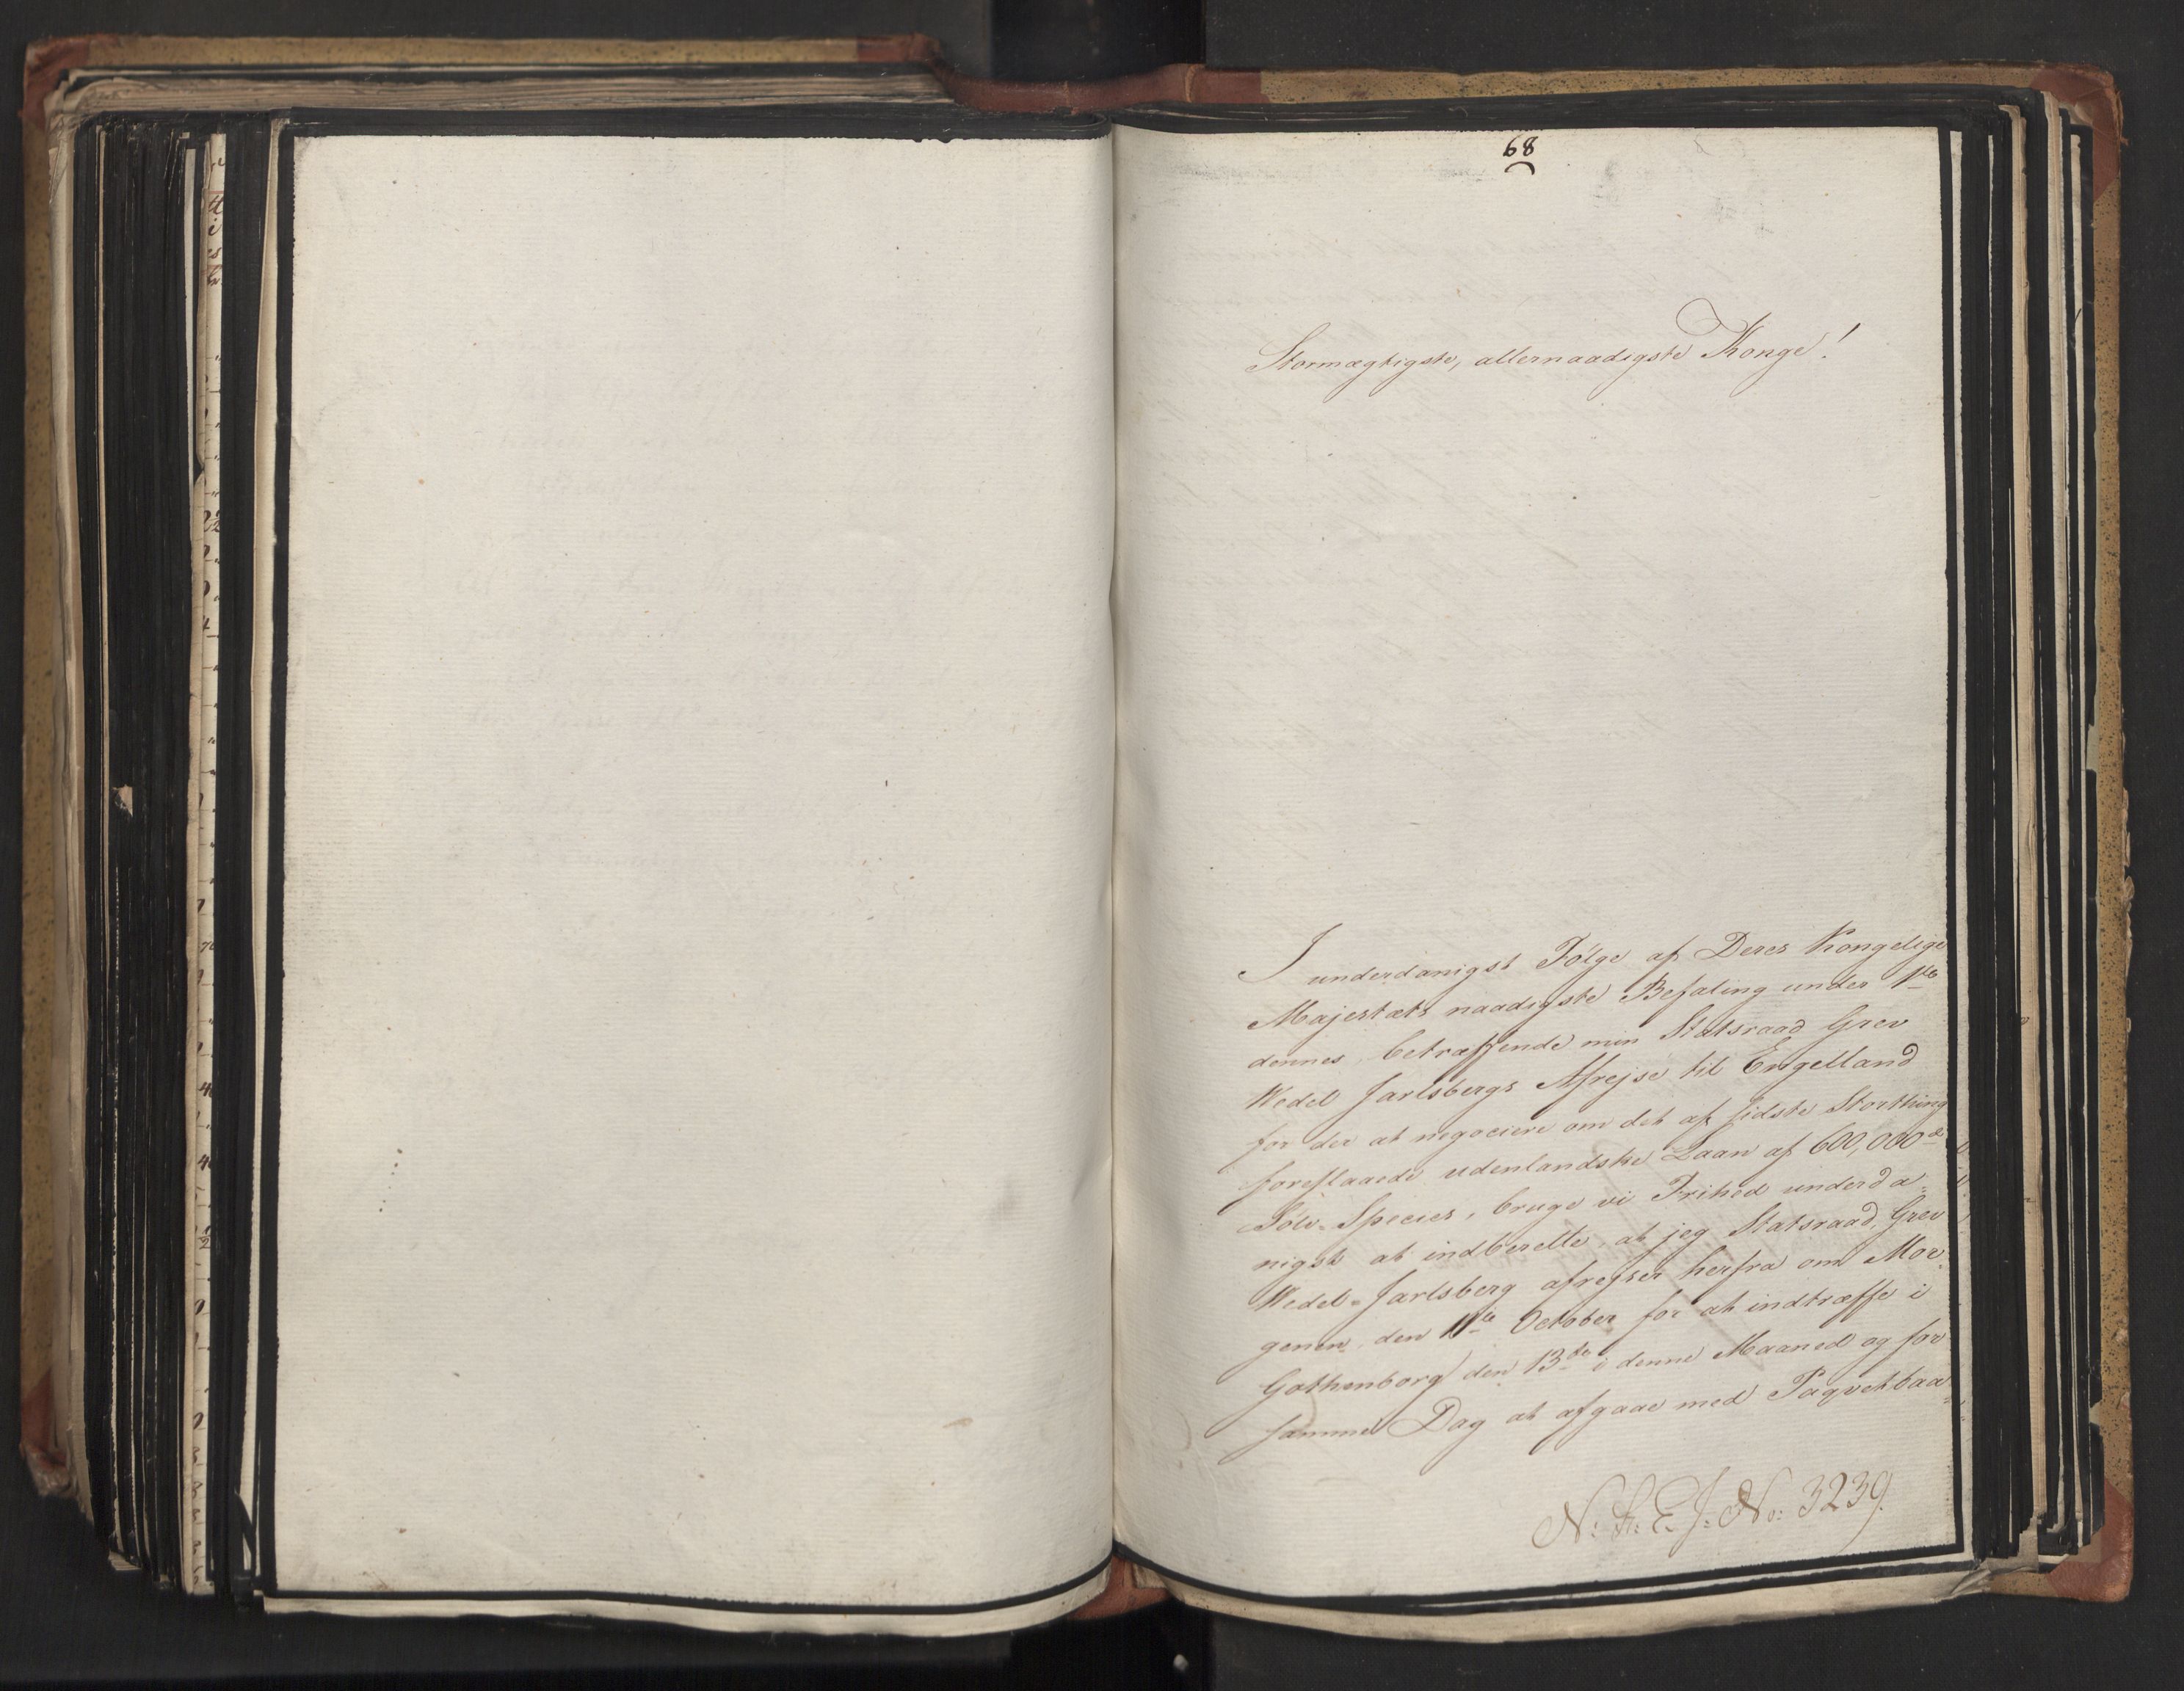 68
Stormægtigste, allernaadigste Konge!
I underdanigst Følge af Deres Kongelige
Majestæts naadigste Befaling under 1ste
dennes, betræffende min Statsraad Grev
Wedel Jarlsbergs Afrejse til Engelland
for der at negociere om det af sidste Storthing
foreslaaede udenlandske Laan af 600,000 d
Sølv-Species, bruge vi Frihed underda-
nigst at indberette, at jeg Statsraad, Grev
Wedel-Jarlsberg afrejser herfra om Mor-
genen den 11te October for at indtræffe i
Gothenborg den 13de i denne Maaned og for
samme Dag at afgaae med Paqvetbaa-
N: S: E. J: No: 3239.